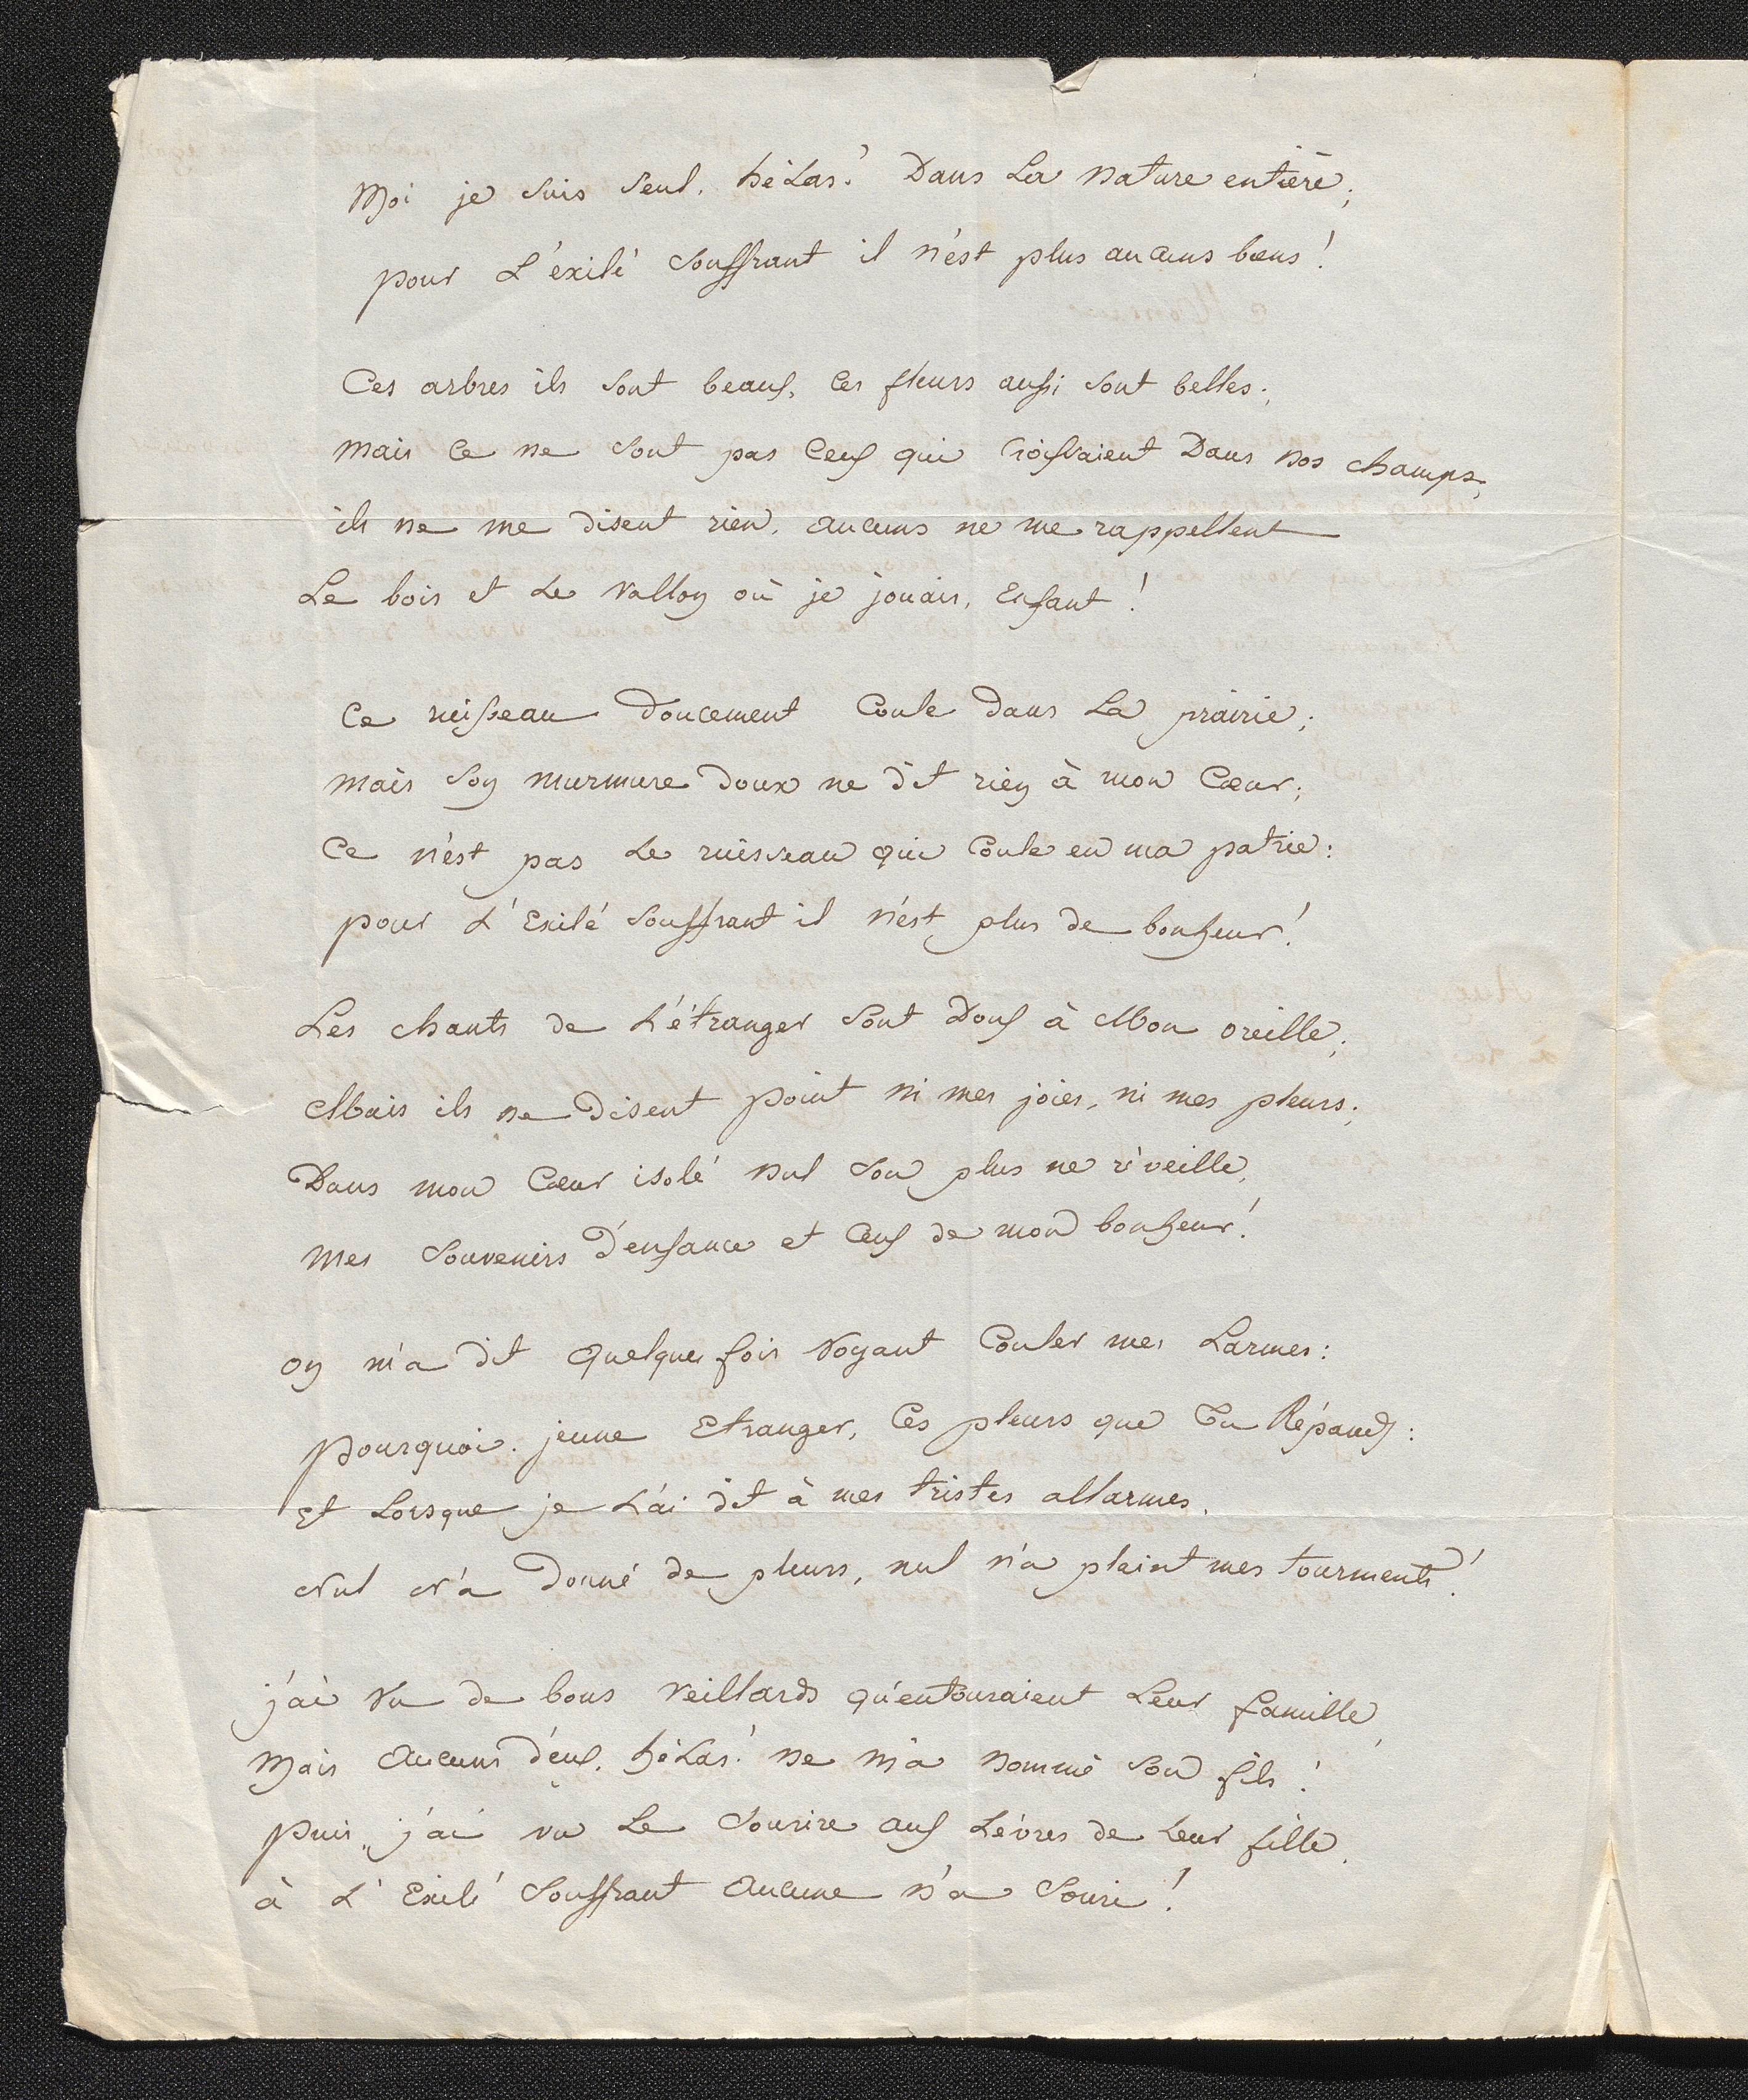 Moi je suis seul, hélas! Dans La Nature entière;
pour L'éxilé souffrant il n'ést plus aucuns biens!
Ces arbres ils sont beaux, Ces fleurs aussi sont belles;
Mais Ce ne sont pas Ceux qui Croissaient Dans nos champs,
ils ne me disent rien, aucuns ne me rappellent
Le bois et Le Vallon où je jouais, Enfant!
Ce ruisseau doucement Coule dans La prairie;
Mais Son murmure doux ne dit rien à mon Cœur;
Ce n'ést pas Le ruisseau qui Coule en ma patrie:
pour L'Exilé souffrant il n'ést plus de bonheur!
Les chants de L'étranger sont Doux à Mon oreille;
Mais ils ne Disent point ni mes joies, ni mes pleurs;
Dans mon Cœur isolé nul son plus ne réveille,
Mes Souvenirs D'enfance et Ceux de mon bonheur!
on m'a dit Quelques fois Voyant Couler mes Larmes:
pourquoi, jeune Etranger, Ces pleurs que Tu Répands:
Et Lorsque je L'ai dit à mes tristes allarmes,
Nul N'a Donné de pleurs, nul n'a plaint mes tourments!
j'ai Vu de bons Veillards qu'entouraient Leur famille,
Mais Aucuns d'eux, hélas! ne m'a nommé son fils!
puis, j'ai vu Le Sourire aux Lévres de Leur fille,
à L'Exilé Souffrant Aucune n'a Souri!